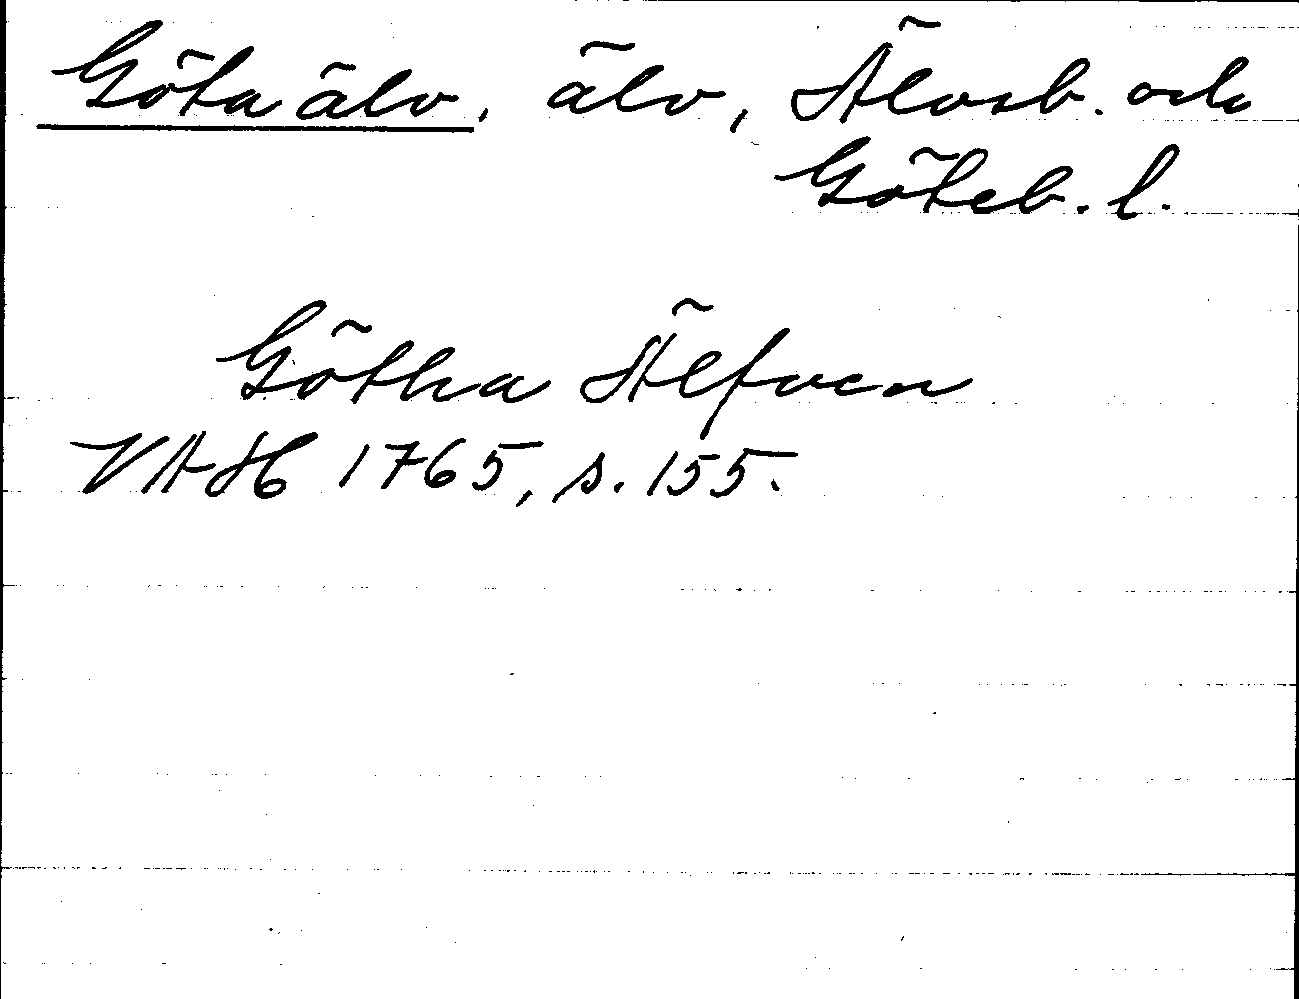 Göta älv, älv, Älvsb. och
Göteb. l.
Götha Älfven
VAH 1765, s. 155.